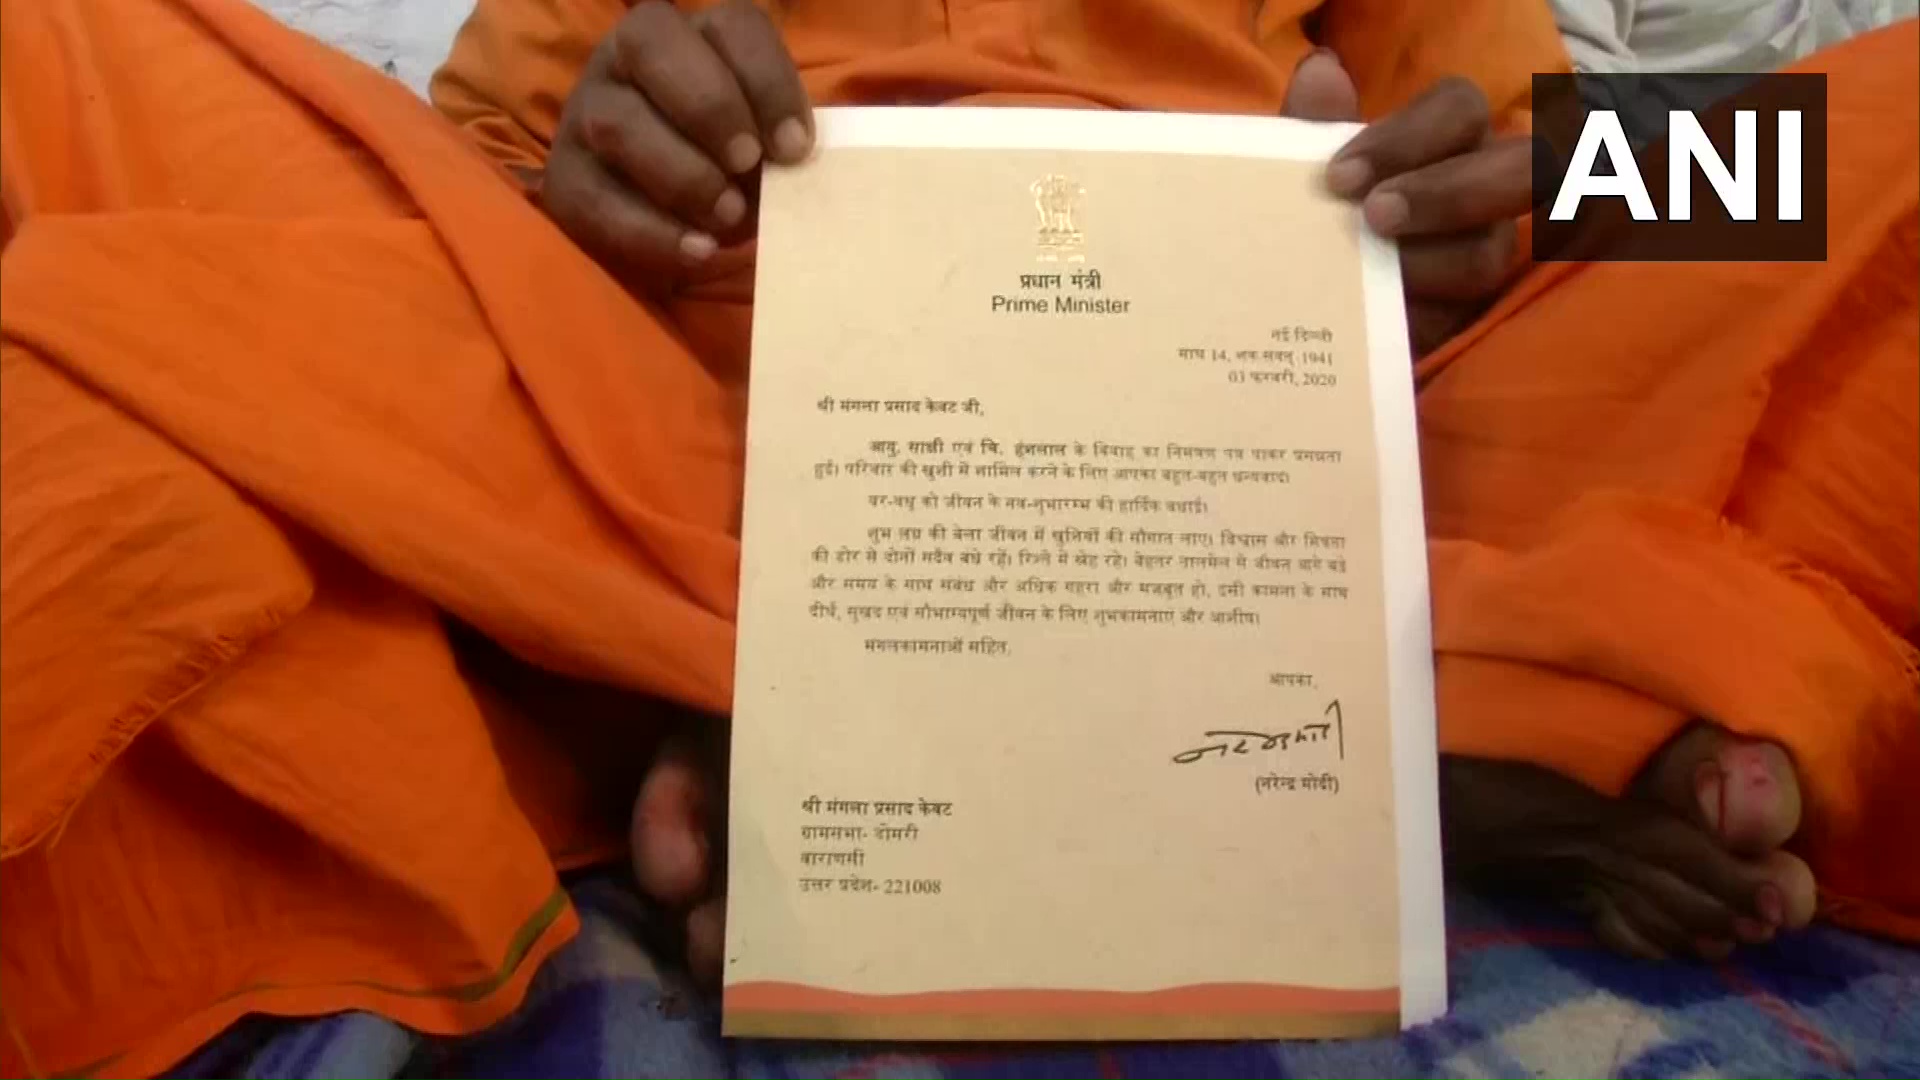 ANI
प्रधान मंत्री
Prime Minister
नई दिल्ली
माघ 14, शक संवत् 1941
03 फरवरी, 2020
श्री मंगला प्रसाद केवट जी,
आयु. साक्षी एवं चि. हंसलाल के विवाह का निमंत्रण पत्र पाकर प्रसन्नता
हुई। परिवार की खुशी में शामिल करने के लिए आपका बहुत-बहुत धन्यवाद।
वर-वधु को जीवन के नव-शुभारम्भ की हार्दिक बधाई।
शुभ लग्न की बेला जीवन में खुशियों की सौगात लाए। विश्वास और मित्रता
की डोर से दोनों सदैव बंधे रहें। रिश्ते में स्नेह रहे। बेहतर तालमेल से जीवन आगे बढ़े
और समय के साथ संबंध और अधिक गहरा और मजबूत हो, इसी कामना के साथ
दीर्घ, सुखद एवं सौभाग्यपूर्ण जीवन के लिए शुभकामनाएं और आशीष।
मंगलकामनाओं सहित,
आपका,
नरेन्द्र मोदी
(नरेन्द्र मोदी)
श्री मंगला प्रसाद केवट
ग्रामसभा- डोमरी
वाराणसी
उत्तर प्रदेश- 221008